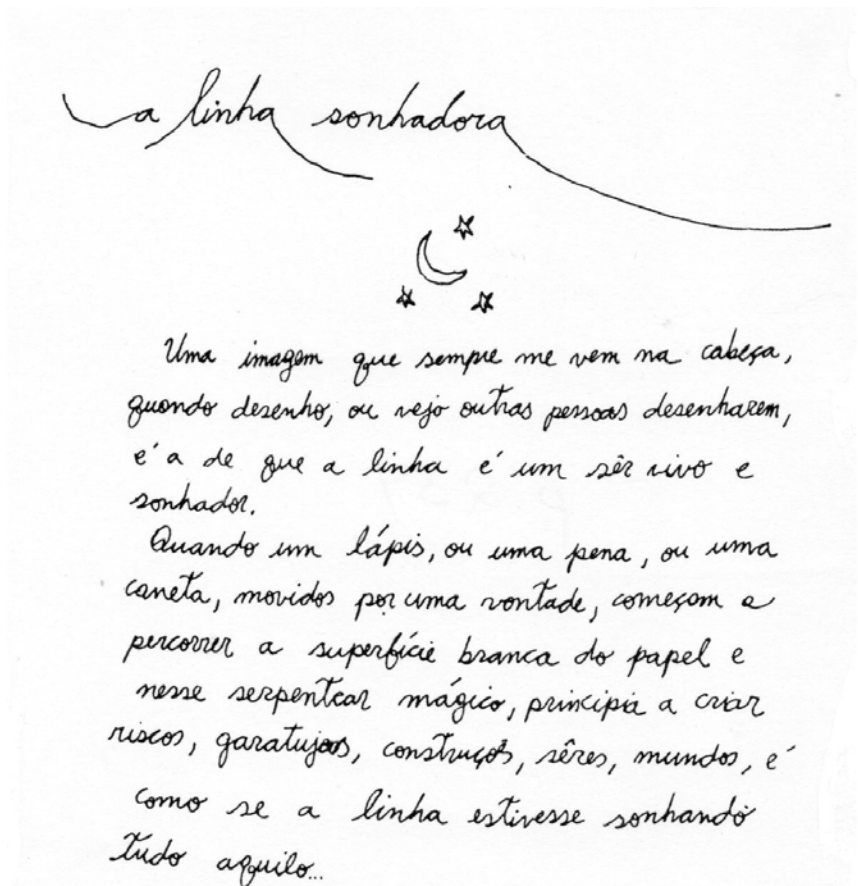 a linha sonhadora
Uma imagem que sempre me vem na cabeça,
quando desenho, ou vejo outras pessoas desenharem,
é a de que a linha é um sêr vivo e
sonhador.
Quando um lápis, ou uma pena, ou uma
caneta, movidos por uma vontade, começam a
percorrer a superfície branca do papel e
nesse serpentear mágico, principia a criar
riscos, garatujas, construçõs, sêres, mundos, é
como se a linha estivesse sonhando
tudo aquilo...